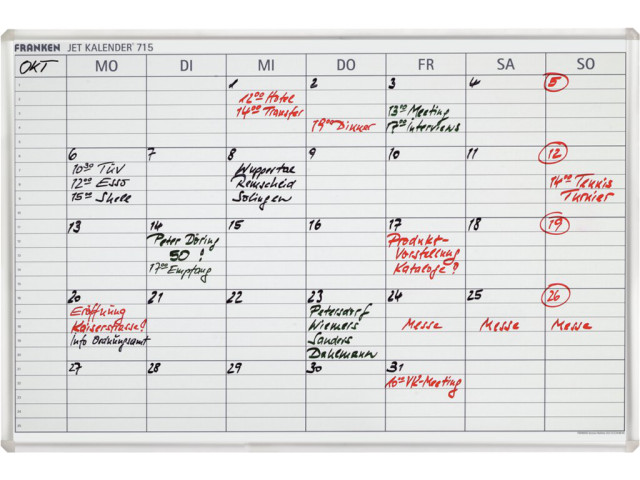 FRANKEN JET KALENDER 715
OKT MO DI MI DO FR SA SO
1 2 3 4 5
12⁰⁰ Hotel
14⁰⁰ Transfer
19⁰⁰ Dinner
13¹⁰ Meeting
17⁰⁰ Interviews
6 7 8 9 10 11 12
10³⁰ TÜV
12⁰⁰ Esso
15⁰⁰ Shell
Wuppertal
Remscheid
Solingen
14⁰⁰ Tennis
Turnier
13 14 15 16 17 18 19
Peter Döring
50 !
17⁰⁰ Empfang
Produkt-
Vorstellung
Kataloge ?
20 21 22 23 24 25 26
Eröffnung
Kaiserstrasse!
Info Ordnungsamt
Petersdorf
Wiemers
Sanders
Dahlemann
Messe Messe Messe
27 28 29 30 31
10⁰⁰ VK-Meeting